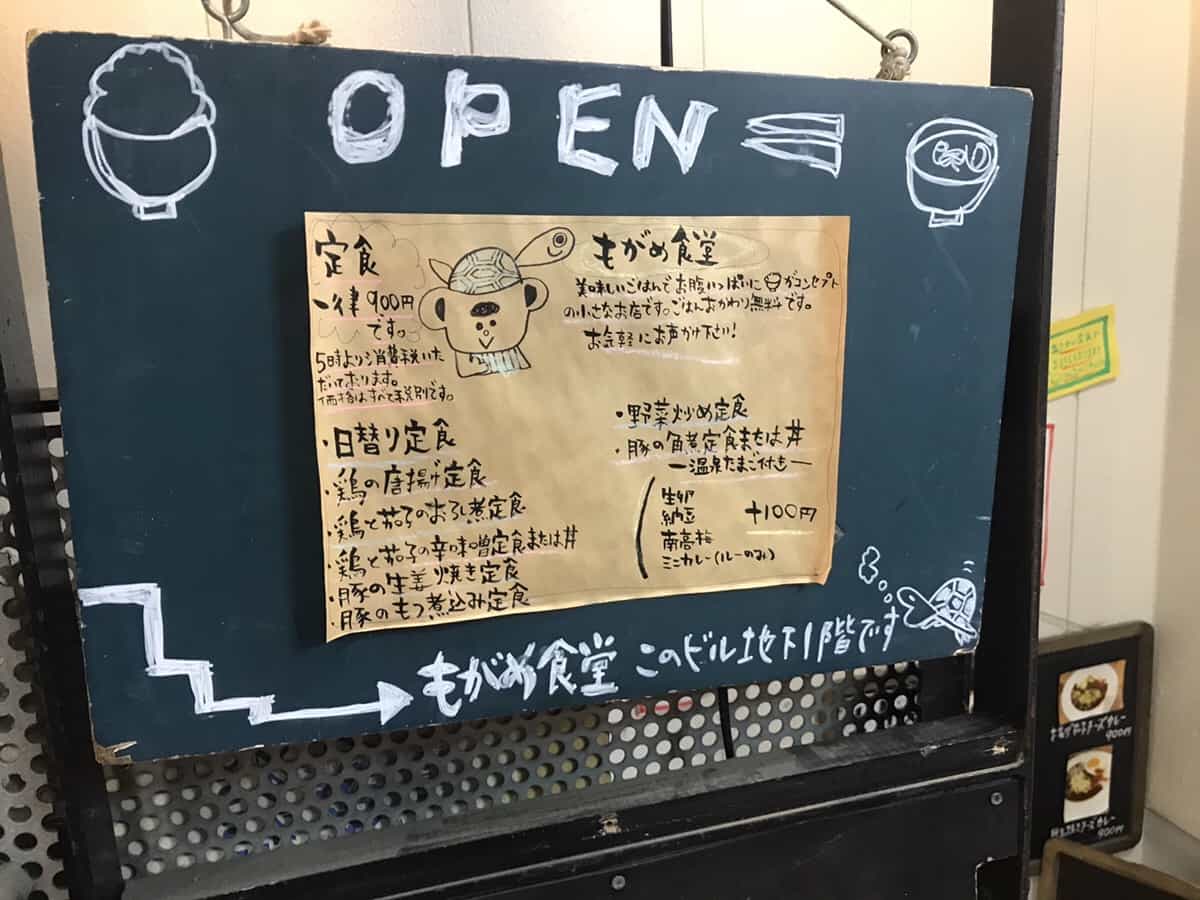 OPEN
定食
一律900円
です。
5時より消費税いた
だいております。
価格はすべて税別です。
もがめ食堂
美味しいごはんでお腹いっぱいにがコンセプト
の小さなお店です。ごはんおかわり無料です。
お気軽にお声がけ下さい!
・日替り定食
・鶏の唐揚げ定食
・鶏と茄子のおろし煮定食
・鶏と茄子の辛味噌定食または丼
・豚の生姜焼き定食
・豚のもつ煮込み定食
・野菜炒め定食
・豚の角煮定食または丼
ー温泉たまご付きー
生卵
納豆
南高梅
ミニカレー(ルーのみ)
+100円
もがめ食堂 このビル地下1階です
チーズカレー
900円
チーズカレー
900円